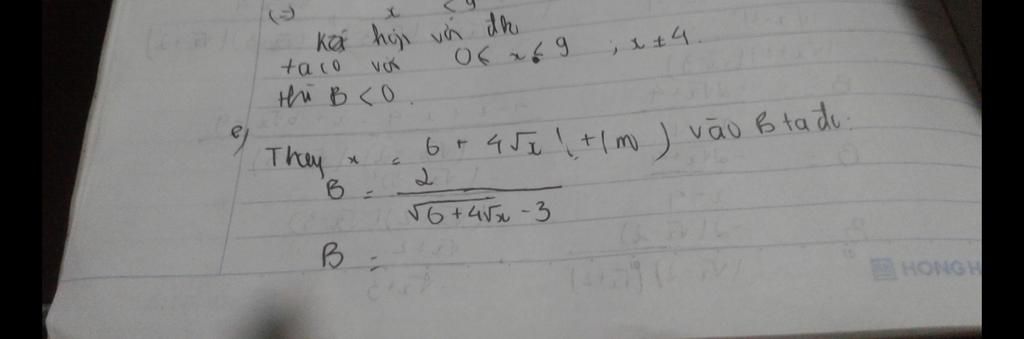 (=) x < 9
Kết hợp với đk
ta có với 0 ≤ x < 9 ; x ≠ 4
thì B < 0.
e) Thay x = 6 + 4√x (t/m) vào B ta đc:
B = 2 / (√6+4√x - 3)
B =
HONG H